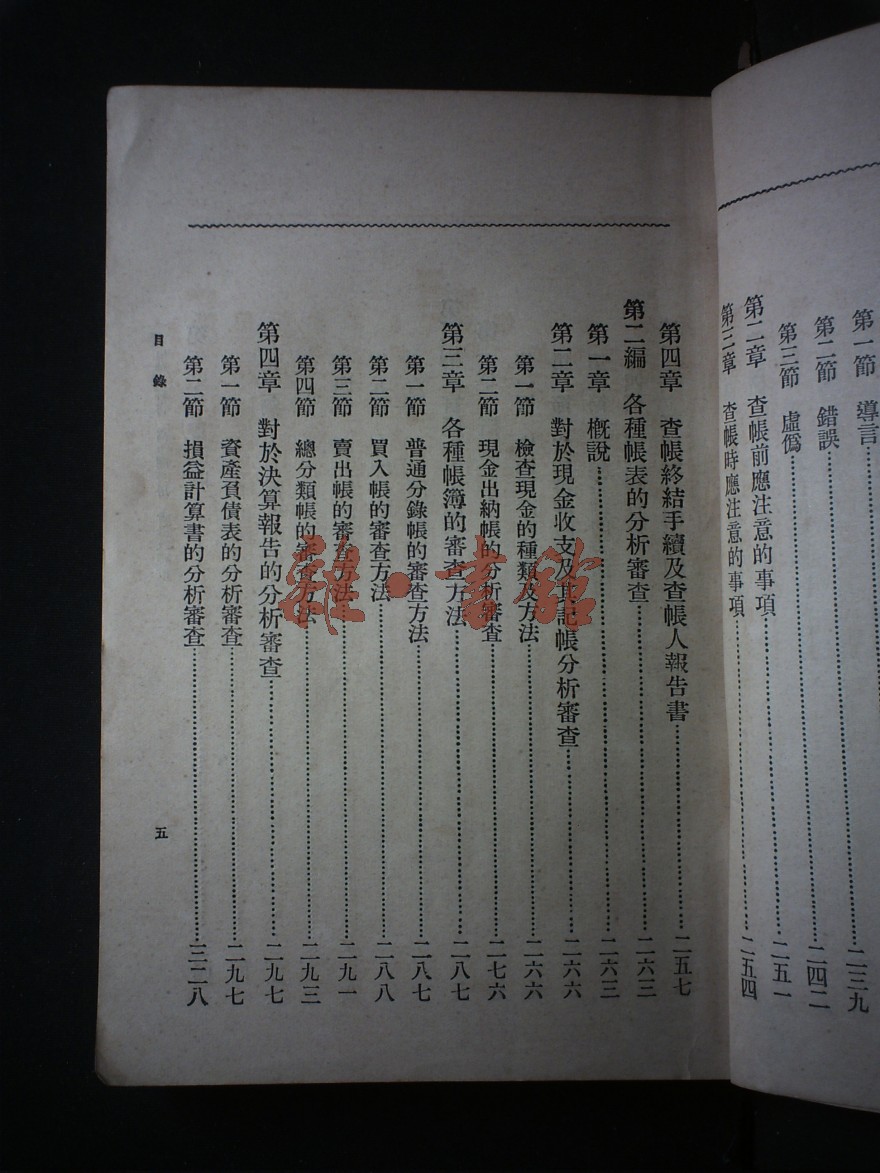 第一節 導言……二三九
第二節 錯誤……二四二
第三節 虛僞……二五一
第二章 查帳前應注意的事項
第三章 查帳時應注意的事項……二五四
第四章 查帳終結手續及查帳人報告書……二五七
第二編 各種帳表的分析審查……二六三
第一章 概說……二六三
第二章 對於現金收支及其記帳分析審查……二六六
第一節 檢查現金的種類及方法……二六六
第二節 現金出納帳的分析審查……二七六
第三章 各種帳簿的審查方法……二八七
第一節 普通分錄帳的審查方法……二八七
第二節 買入帳的審查方法……二八八
第三節 賣出帳的審查方法……二九一
第四節 總分類帳的審查方法……二九三
第四章 對於決算報告的分析審查……二九七
第一節 資產負債表的分析審查……二九七
第二節 損益計算書的分析審查……三二八
目錄
五
雜·書館